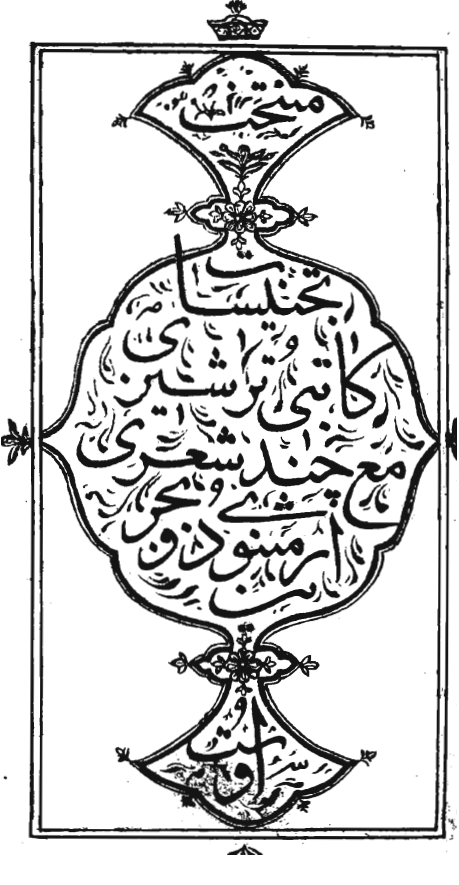 منتخب
تجنیسات
کاتبی ترشیزی
مع چند شعری
از مثنوی ذو بحرین
اوست